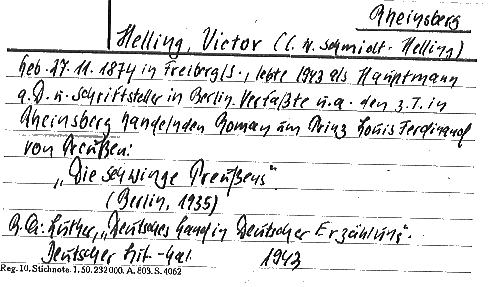 Rheinsberg
Helling, Victor (l. v. Schmidt-Helling)
Geb. 27. 11. 1874 in Freiberg/S., lebte 1943 als Hauptmann
a. D. u. Schriftsteller in Berlin. Verfaßte u. a. den z. T. in
Rheinsberg handelnden Roman um Prinz Louis Ferdinand
von Preußen:
„Die Schwinge Preußens"
(Berlin, 1935)
Luther, „Deutsches Land in Deutscher Erzählung".
Deutscher Lit.-Kal. 1943
Reg. 10. Stichnote. 1. 50. 232000. A. 803. S. 4062